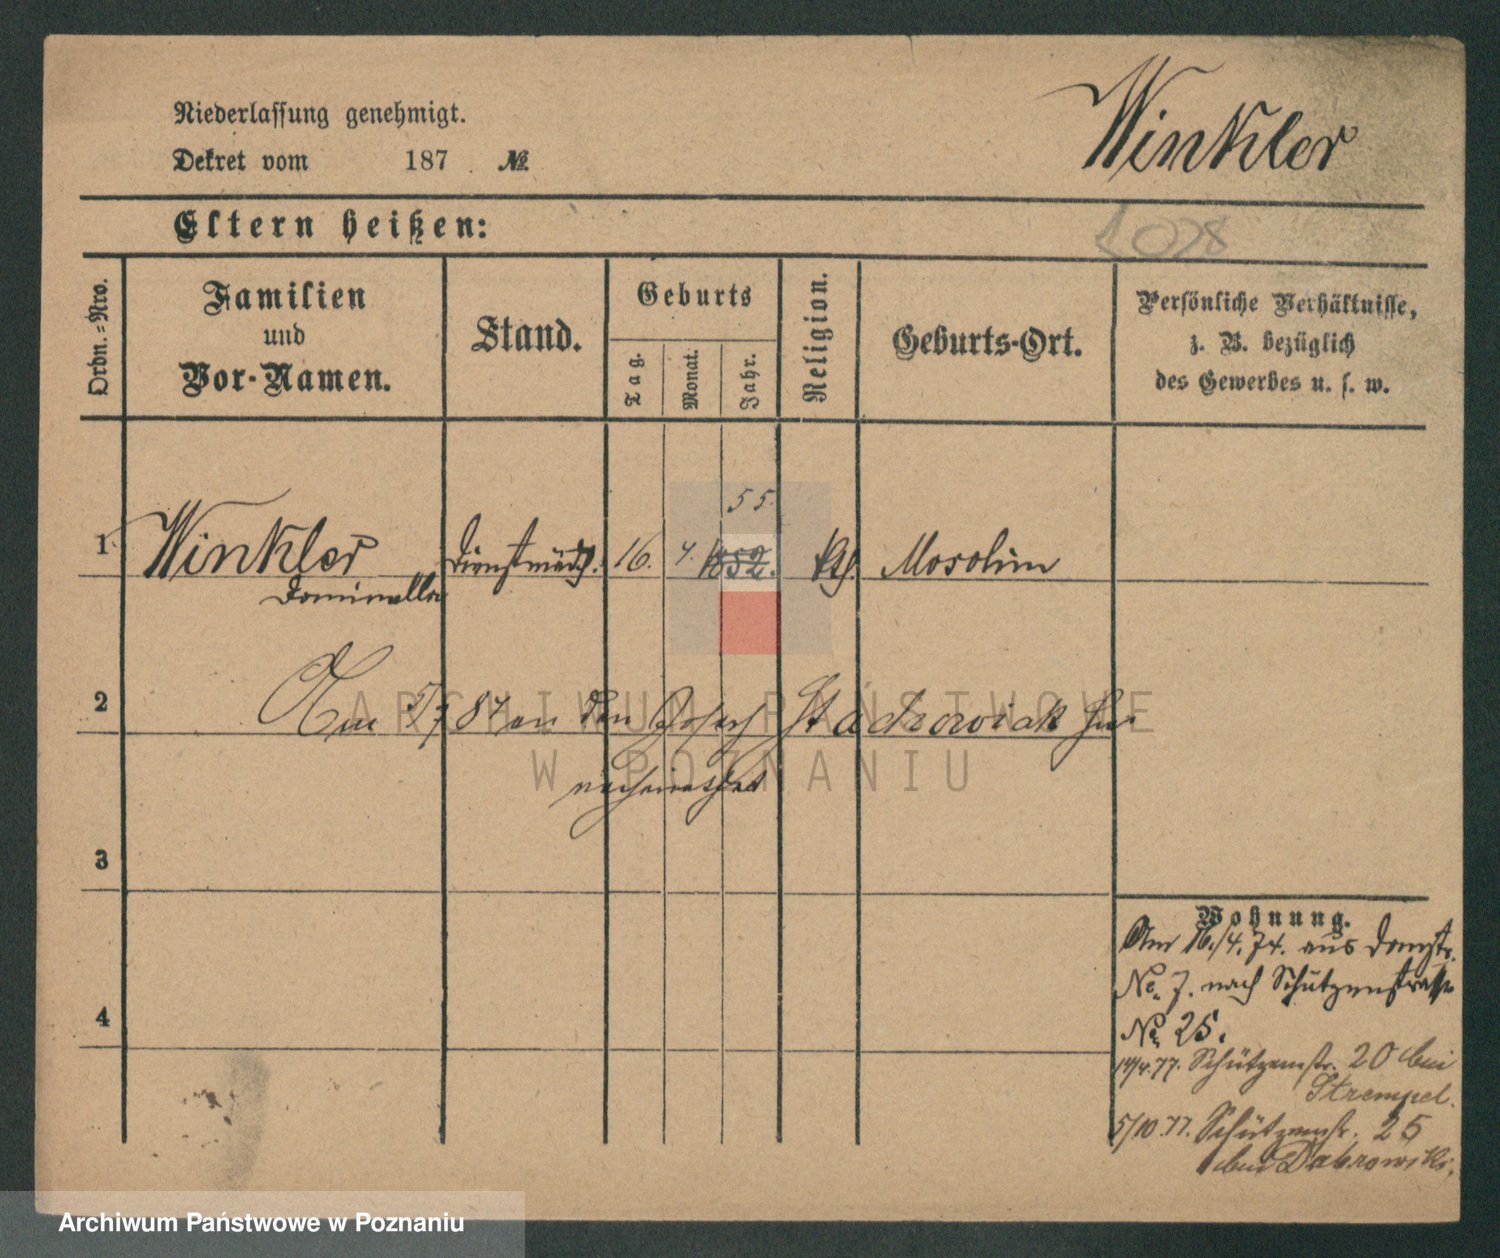 Winkler
Niederlassung genehmigt.
Dekret vom 187 . №
Eltern heißen:
1028
Ordn.=Nro.
Familien
und
Vor-Namen.
Stand.
Geburts
Tag.
Monat.
Jahr.
Religion.
Geburts-Ort.
Persönliche Verhältnisse,
z. B. bezüglich
des Gewerbes u. s. w.
55.
1 Winkler Dienstmädch. 16. 4. 1852. kth. Mosolim
Dominella
2 Am 5/7 87 an den Joseph Stadrowiak hier
verheirathet
3
4
Wohnung.
Am 16./4. 74. aus Domstr.
No. 7. nach Schützenstrasse
No 25.
14/4.77. Schützenstr. 20 bei
Strempel.
5/10.77. Schützenstr. 25
bei Dabrowski.
ARCHIWUM PAŃSTWOWE
W POZNANIU
Archiwum Państwowe w Poznaniu